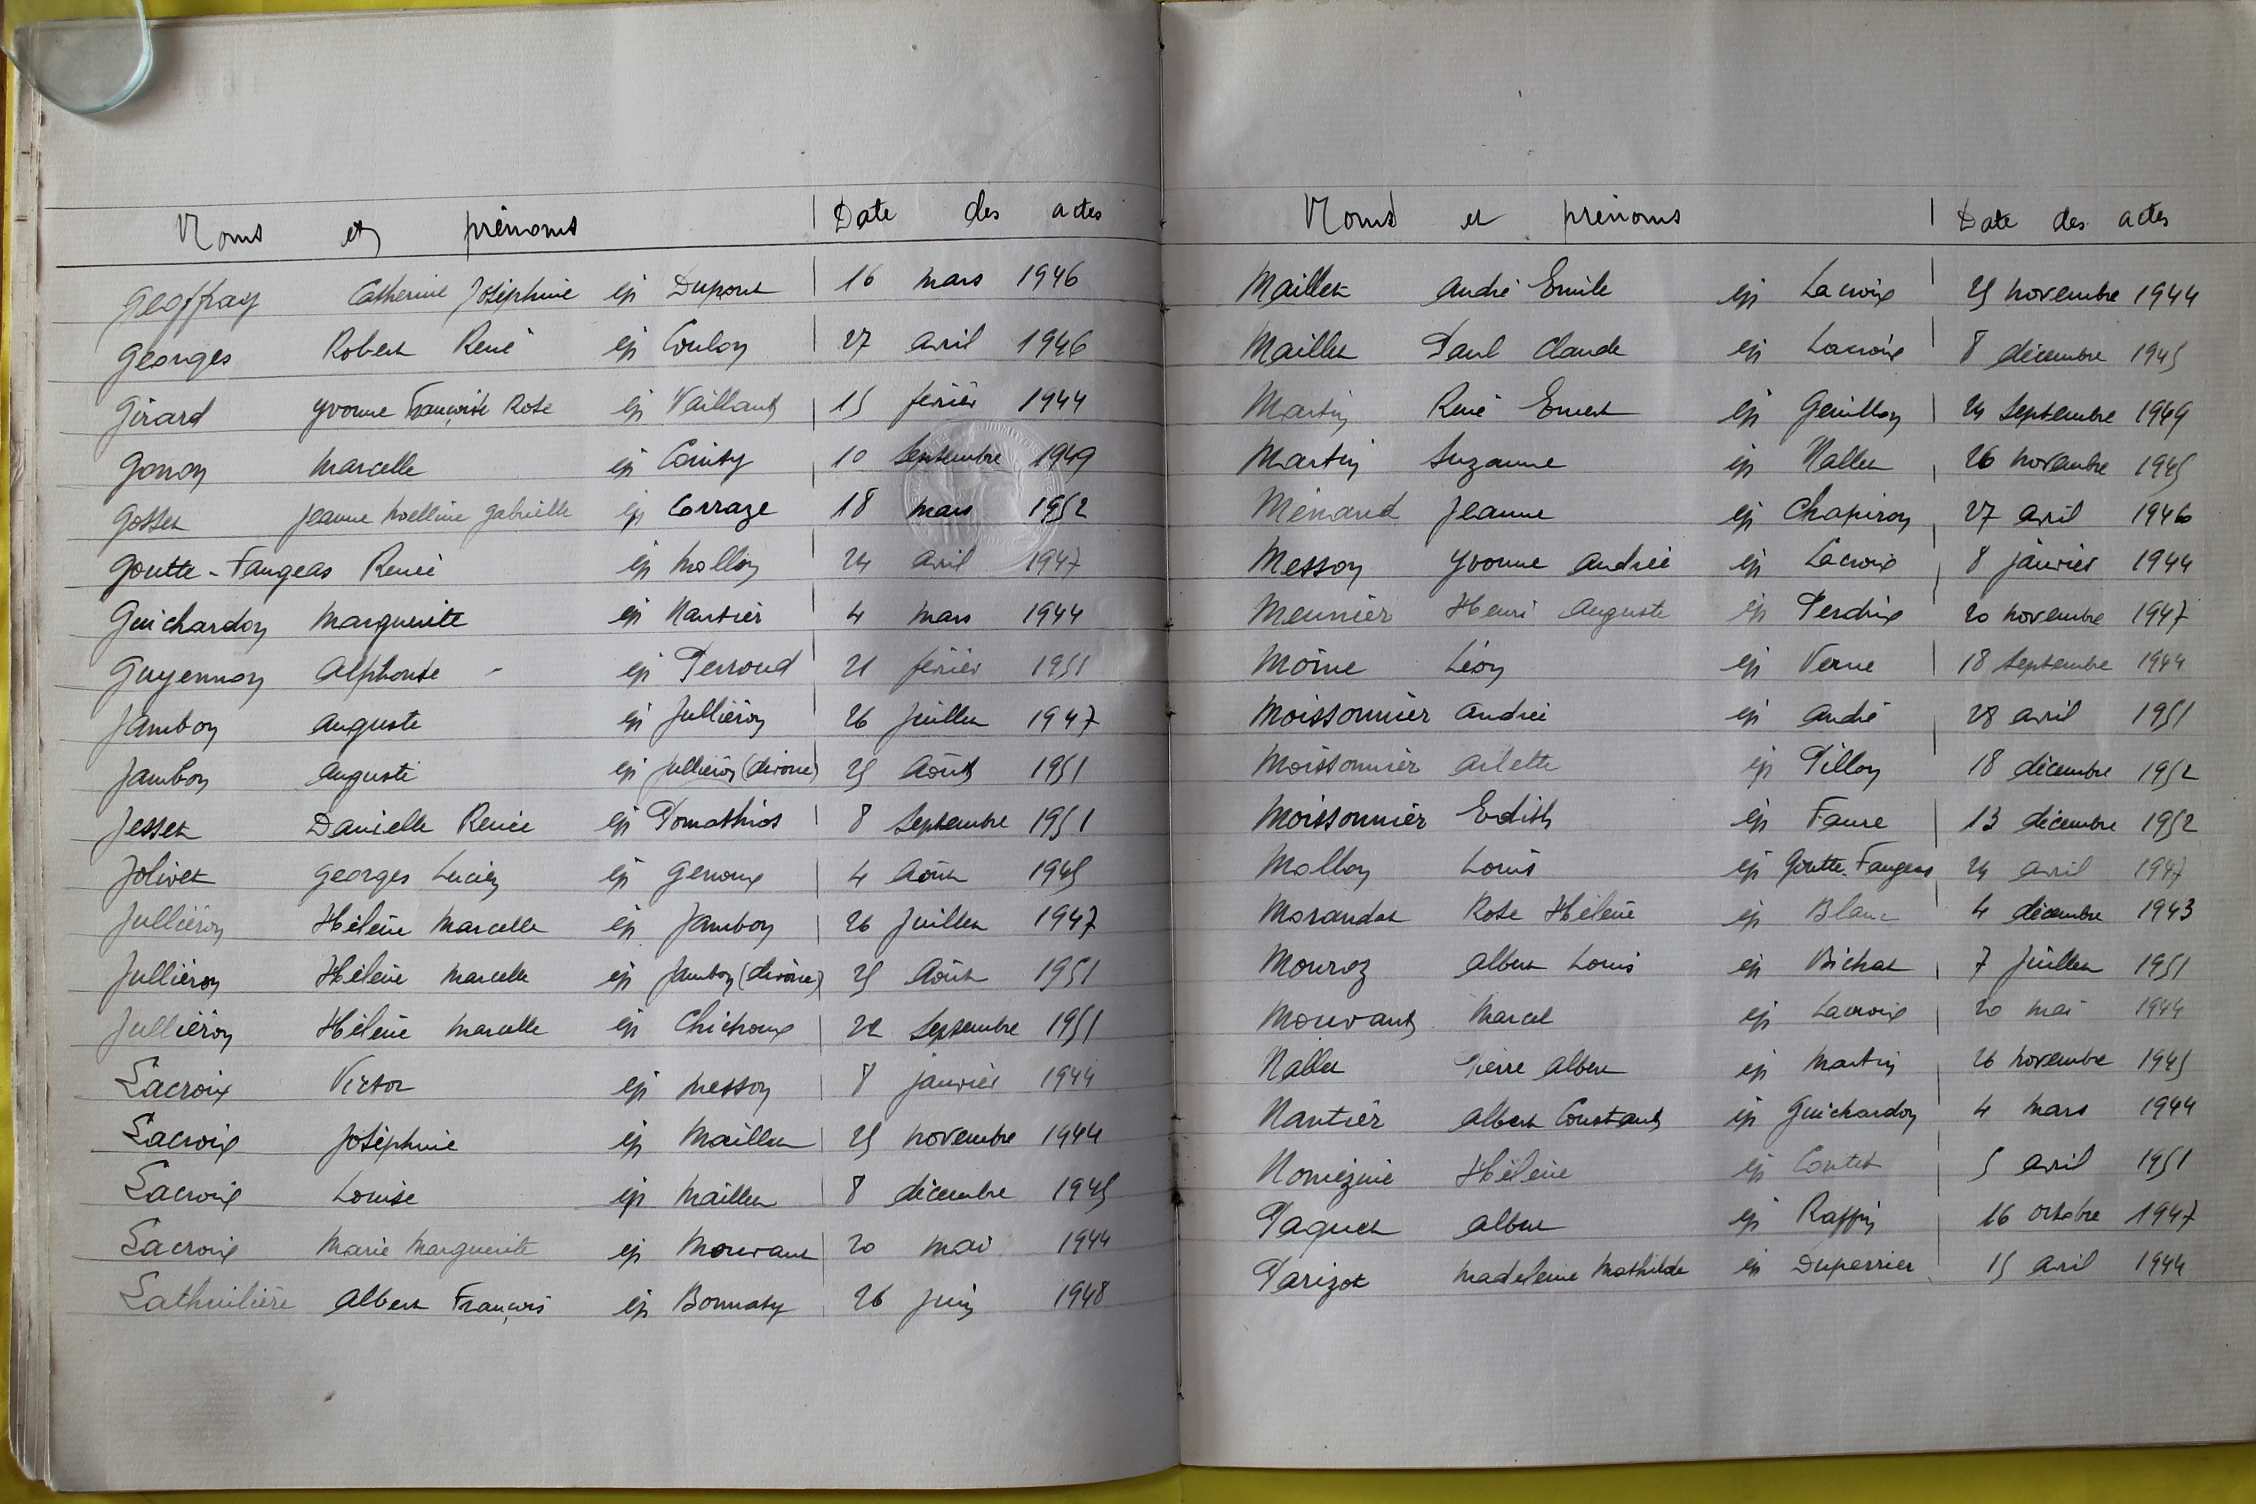 Noms et prénoms Date des actes
Geoffray Catherine Joséphine ép Dupont 16 mars 1946
Georges Robert René ép Coulon 27 avril 1946
Girard Yvonne Françoise Rose ép Vaillant 15 février 1944
Gonon Marcelle ép Cointy 10 Septembre 1949
Gosset Jeanne Noelline Gabrielle ép Corraze 18 mars 1952
Goutte-Fangeas Renée ép Mollon 24 avril 1947
Guichardon Marguerite ép Nantier 4 mars 1944
Guyennon Alphonse - ép Perroud 21 février 1951
Jambon Auguste ép Julliéron 26 Juillet 1947
Jambon Auguste ép Julliéron (divorce) 25 Août 1951
Jesset Danielle Renée ép Pomathios 8 Septembre 1951
Jolivet Georges Lucien ép Genoux 4 Août 1945
Julliéron Hélène Marcelle ép Jambon 26 Juillet 1947
Julliéron Hélène Marcelle ép Jambon (divorce) 25 Août 1951
Julliéron Hélène Marcelle ép Chichoux 22 Septembre 1951
Lacroix Victor ép Messon 8 janvier 1944
Lacroix Joséphine ép Maillet 25 novembre 1944
Lacroix Louise ép Maillet 8 décembre 1945
Lacroix Marie Marguerite ép Mouvant 20 mai 1944
Lathuilière Albert François ép Bonnaty 26 Juin 1948
Noms et prénoms Date des actes
Maillet André Emile ép Lacroix 25 novembre 1944
Maillet Paul Claude ép Lacroix 8 décembre 1945
Martin René Ernest ép Genillon 24 Septembre 1949
Martin Suzanne ép Nallet 26 novembre 1945
Ménand Jeanne ép Chapiron 27 avril 1946
Messon Yvonne Andrée ép Lacroix 8 janvier 1944
Meunier Henri Auguste ép Perdrix 20 novembre 1947
Moine Léon ép Verne 18 Septembre 1944
Moissonnier Andrée ép André 28 avril 1951
Moissonnier Arlette ép Pillon 18 décembre 1952
Moissonnier Edith ép Faure 13 décembre 1952
Mollon Louis ép Goutte-Fangeas 24 avril 1947
Morandat Rose Hélène ép Blanc 4 décembre 1943
Mouroz Albert Louis ép Bichat 7 Juillet 1951
Mouvant Marcel ép Lacroix 20 mai 1944
Nallet Pierre Albert ép Martin 26 novembre 1945
Nantier Albert Constant ép Guichardon 4 mars 1944
Hélène ép Contet 5 avril 1951
Paquet Albert ép Raffin 16 octobre 1947
Parizot Madeleine Mathilde ép Duperrier 15 avril 1944